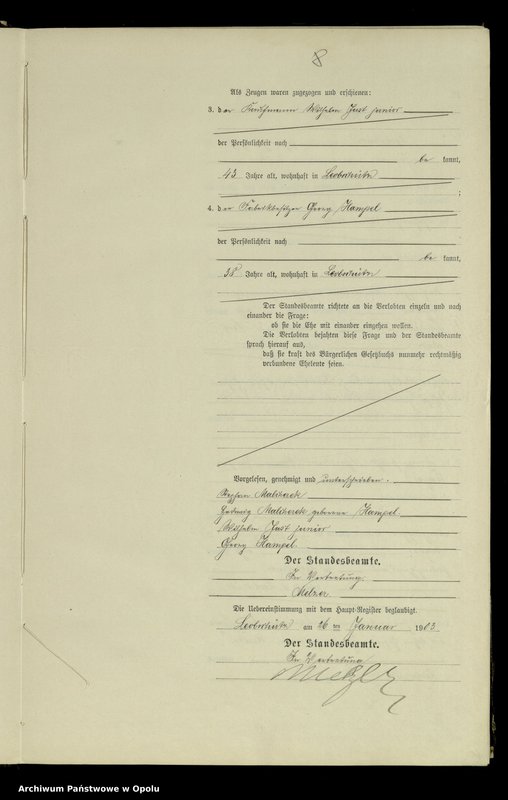 8
Als Zeugen waren zugezogen und erschienen:
3. der Kaufmann Wilhelm Just junior
der Persönlichkeit nach
be kannt,
43 Jahre alt, wohnhaft in Leobschütz
;
4. der Fabrikbesitzer Georg Hampel
der Persönlichkeit nach
be kannt,
38 Jahre alt, wohnhaft in Leobschütz
Der Standesbeamte richtete an die Verlobten einzeln und nach
einander die Frage:
ob sie die Ehe mit einander eingehen wollen.
Die Verlobten bejahten diese Frage und der Standesbeamte
sprach hierauf aus,
daß sie kraft des Bürgerlichen Gesetzbuchs nunmehr rechtmäßig
verbundene Eheleute seien.
Vorgelesen, genehmigt und unterschrieben.
Hedwig geborene Hampel
Wilhelm Just junior
Georg Hampel
Der Standesbeamte.
In Vertretung.
Melzer.
Die Uebereinstimmung mit dem Haupt-Register beglaubigt.
Leobschütz am 26 ten Januar 1903
Der Standesbeamte.
In Vertretung
Melzer
Archiwum Państwowe w Opolu